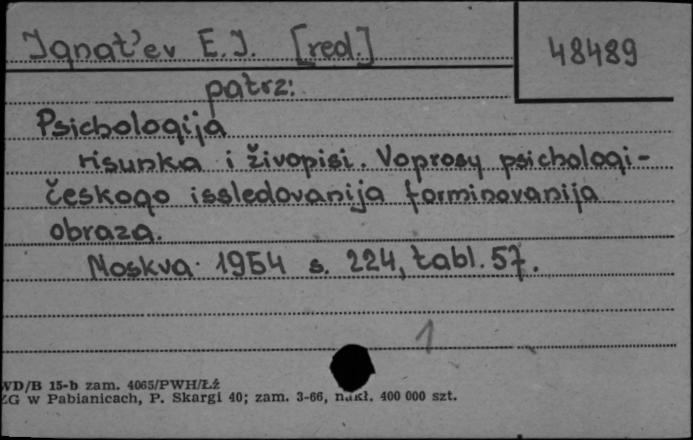 Ignat'ev E.I. [red.]
48489
patrz:
Psichologija
risunka i živopisi. Voprosy psichologi-
českogo issledovanija formirovanija
obraza.
Moskva 1954 s. 224, tabl. 57.
1
WD/B 15-b zam. 4065/PWH/Łź
ZG w Pabianicach, P. Skargi 40; zam. 3-66, nakł. 400 000 szt.